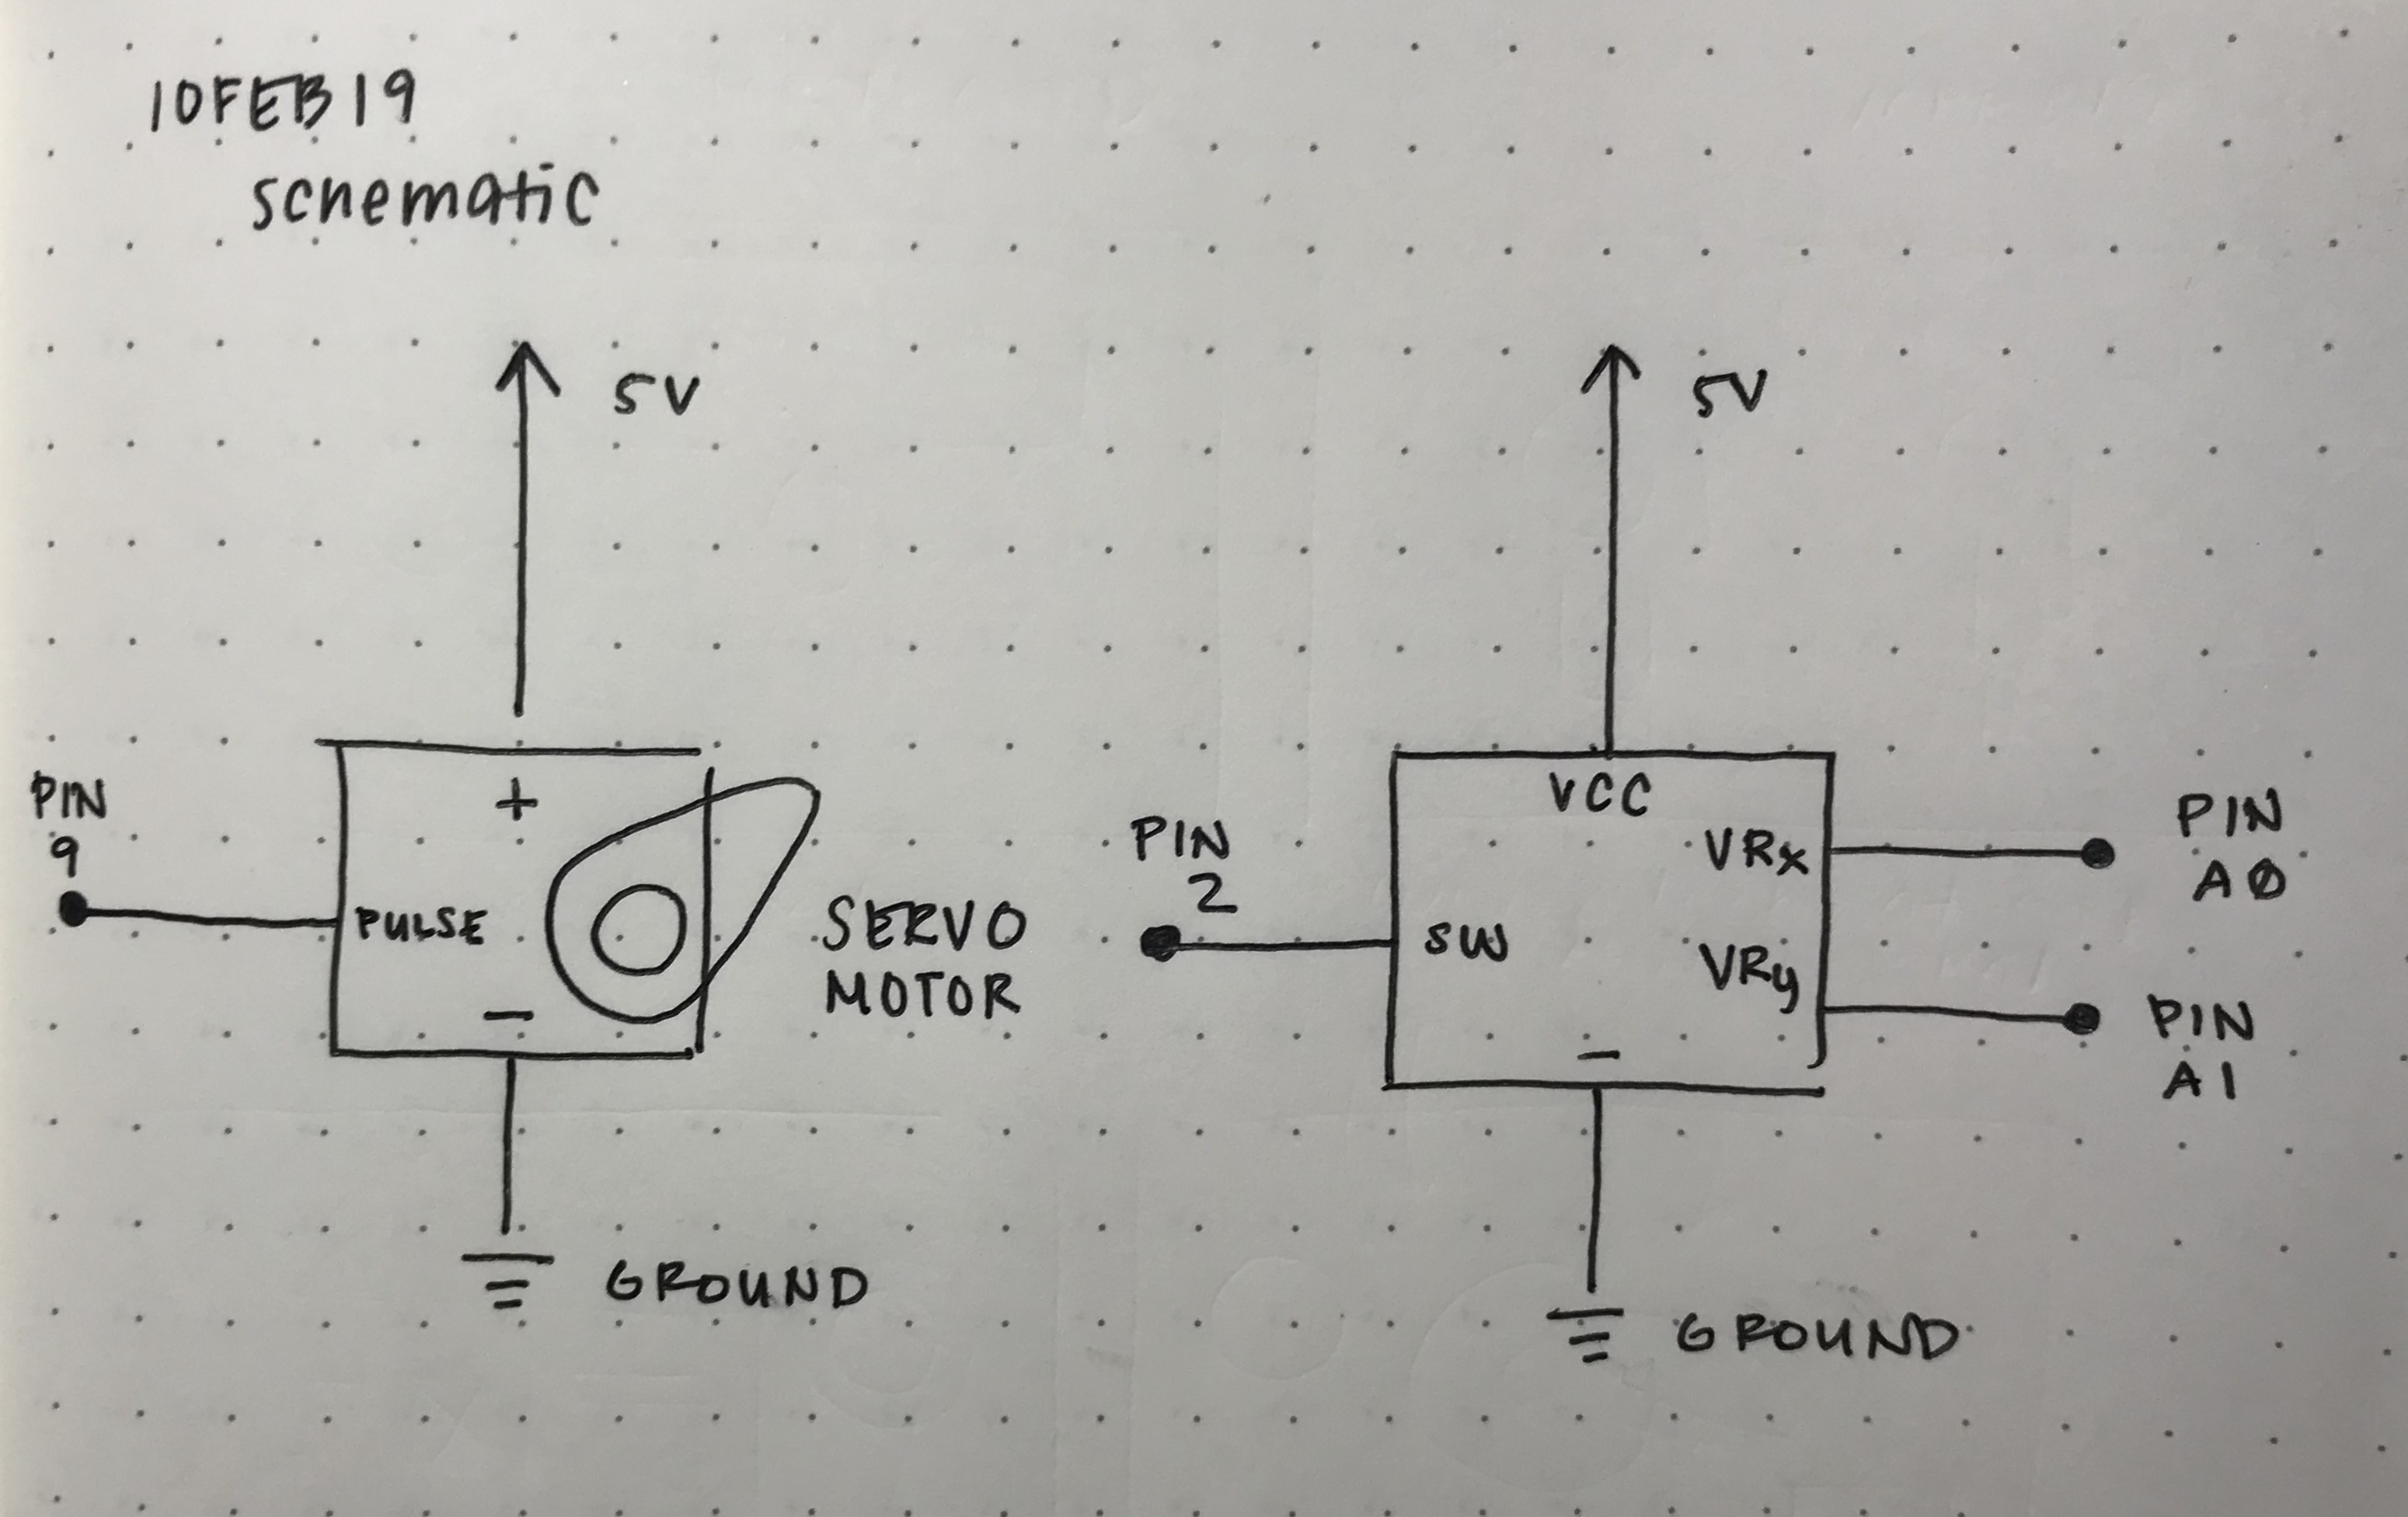 10FEB19
schematic
5V
5V
+
PIN
9
PULSE
−
SERVO
MOTOR
GROUND
VCC
PIN
2
SW
VRx
VRy
−
PIN
A0
PIN
A1
GROUND